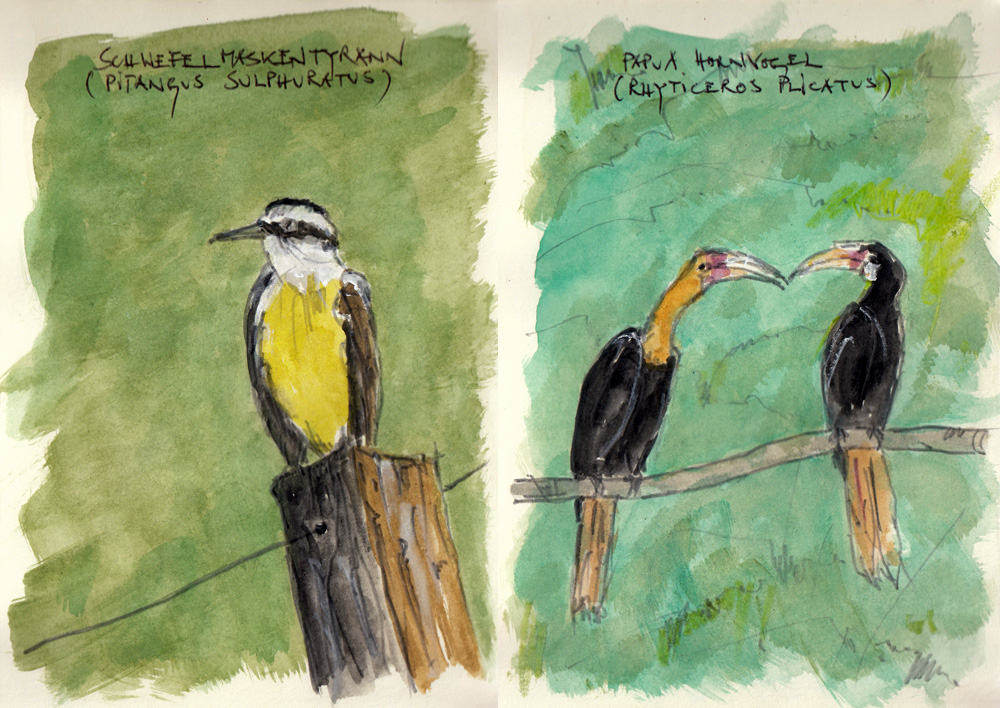 SCHWEFELMASKENTYRANN
(PITANGUS SULPHURATUS)
PAPUA HORNVOGEL
(RHYTICEROS PLICATUS)